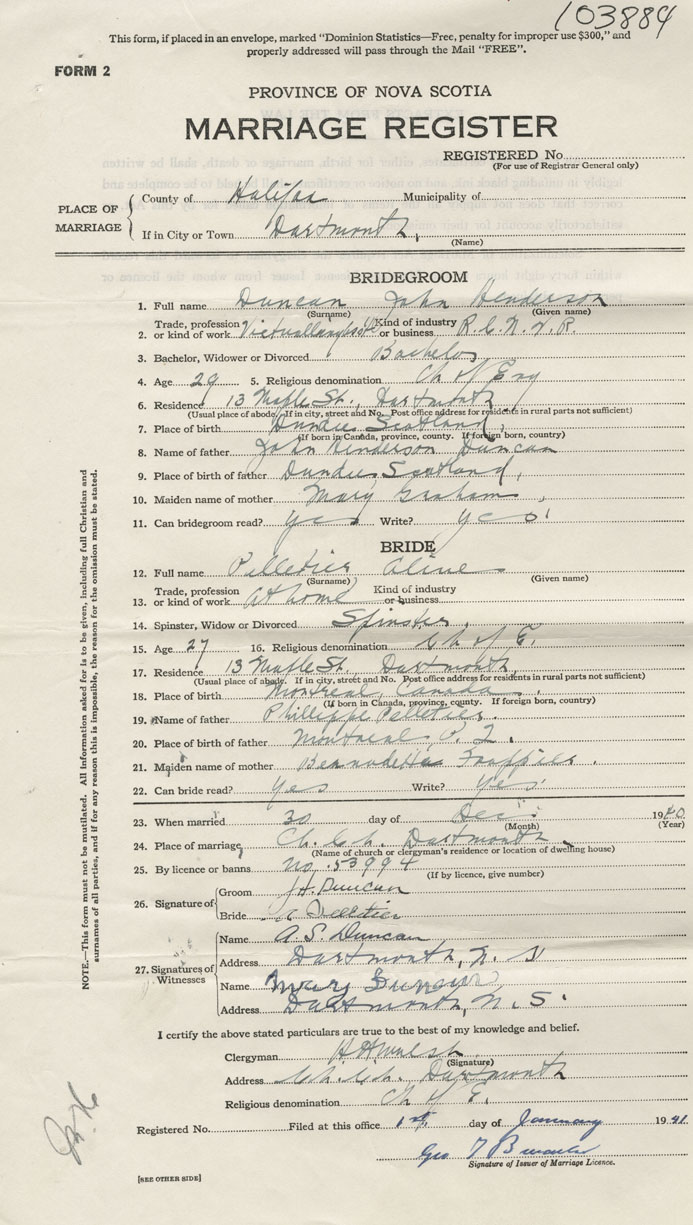 103884
This form, if placed in an envelope, marked "Dominion Statistics—Free, penalty for improper use $300," and
properly addressed will pass through the Mail "FREE".
FORM 2
PROVINCE OF NOVA SCOTIA
MARRIAGE REGISTER
REGISTERED No.
(For use of Registrar General only)
PLACE OF MARRIAGE
County of Halifax Municipality of
If in City or Town Dartmouth,
(Name)
BRIDEGROOM
1. Full name Duncan John Henderson
(Surname) (Given name)
2. Trade, profession or kind of work Kind of industry or business R.C.N.V.R.
3. Bachelor, Widower or Divorced Bachelor
4. Age 29 5. Religious denomination Ch of Eng
6. Residence 13 Maple St., Dartmouth
(Usual place of abode. If in city, street and No. Post office address for residents in rural parts not sufficient)
7. Place of birth Dundee Scotland,
(If born in Canada, province, county. If foreign born, country)
8. Name of father John Henderson Duncan
9. Place of birth of father Dundee Scotland,
10. Maiden name of mother Mary Graham,
11. Can bridegroom read? yes Write? yes
BRIDE
12. Full name Pelletier Aline
(Surname) (Given name)
13. Trade, profession or kind of work at home Kind of industry or business
14. Spinster, Widow or Divorced Spinster.
15. Age 27 16. Religious denomination Ch of E.
17. Residence 13 Maple St., Dartmouth
(Usual place of abode. If in city, street and No. Post office address for residents in rural parts not sufficient)
18. Place of birth Montreal, Canada.
(If born in Canada, province, county. If foreign born, country)
19. Name of father Phillippe Pelletier.
20. Place of birth of father Montreal P. Q.
21. Maiden name of mother Bernadette
22. Can bride read? yes Write? yes
23. When married 30 day of Dec. 1940
(Month) (Year)
24. Place of marriage Ch. Ch. Dartmouth
(Name of church or clergyman's residence or location of dwelling house)
25. By licence or banns no. 53994
(If by licence, give number)
26. Signature of
Groom J.H. Duncan
Bride A Pelletier
27. Signatures of Witnesses
Name A. S. Duncan
Address Dartmouth, N. S
Name Mary Duncan
Address Dartmouth, N. S.
I certify the above stated particulars are true to the best of my knowledge and belief.
Clergyman H H Walsh
(Signature)
Address Ch. Ch. Dartmouth
Religious denomination Ch of E.
Registered No. Filed at this office 1st day of January 1941
Geo
Signature of Issuer of Marriage Licence.
[SEE OTHER SIDE]
NOTE.—This form must not be mutilated. All information asked for is to be given, including full Christian and
surnames of all parties, and if for any reason this is impossible, the reason for the omission must be stated.